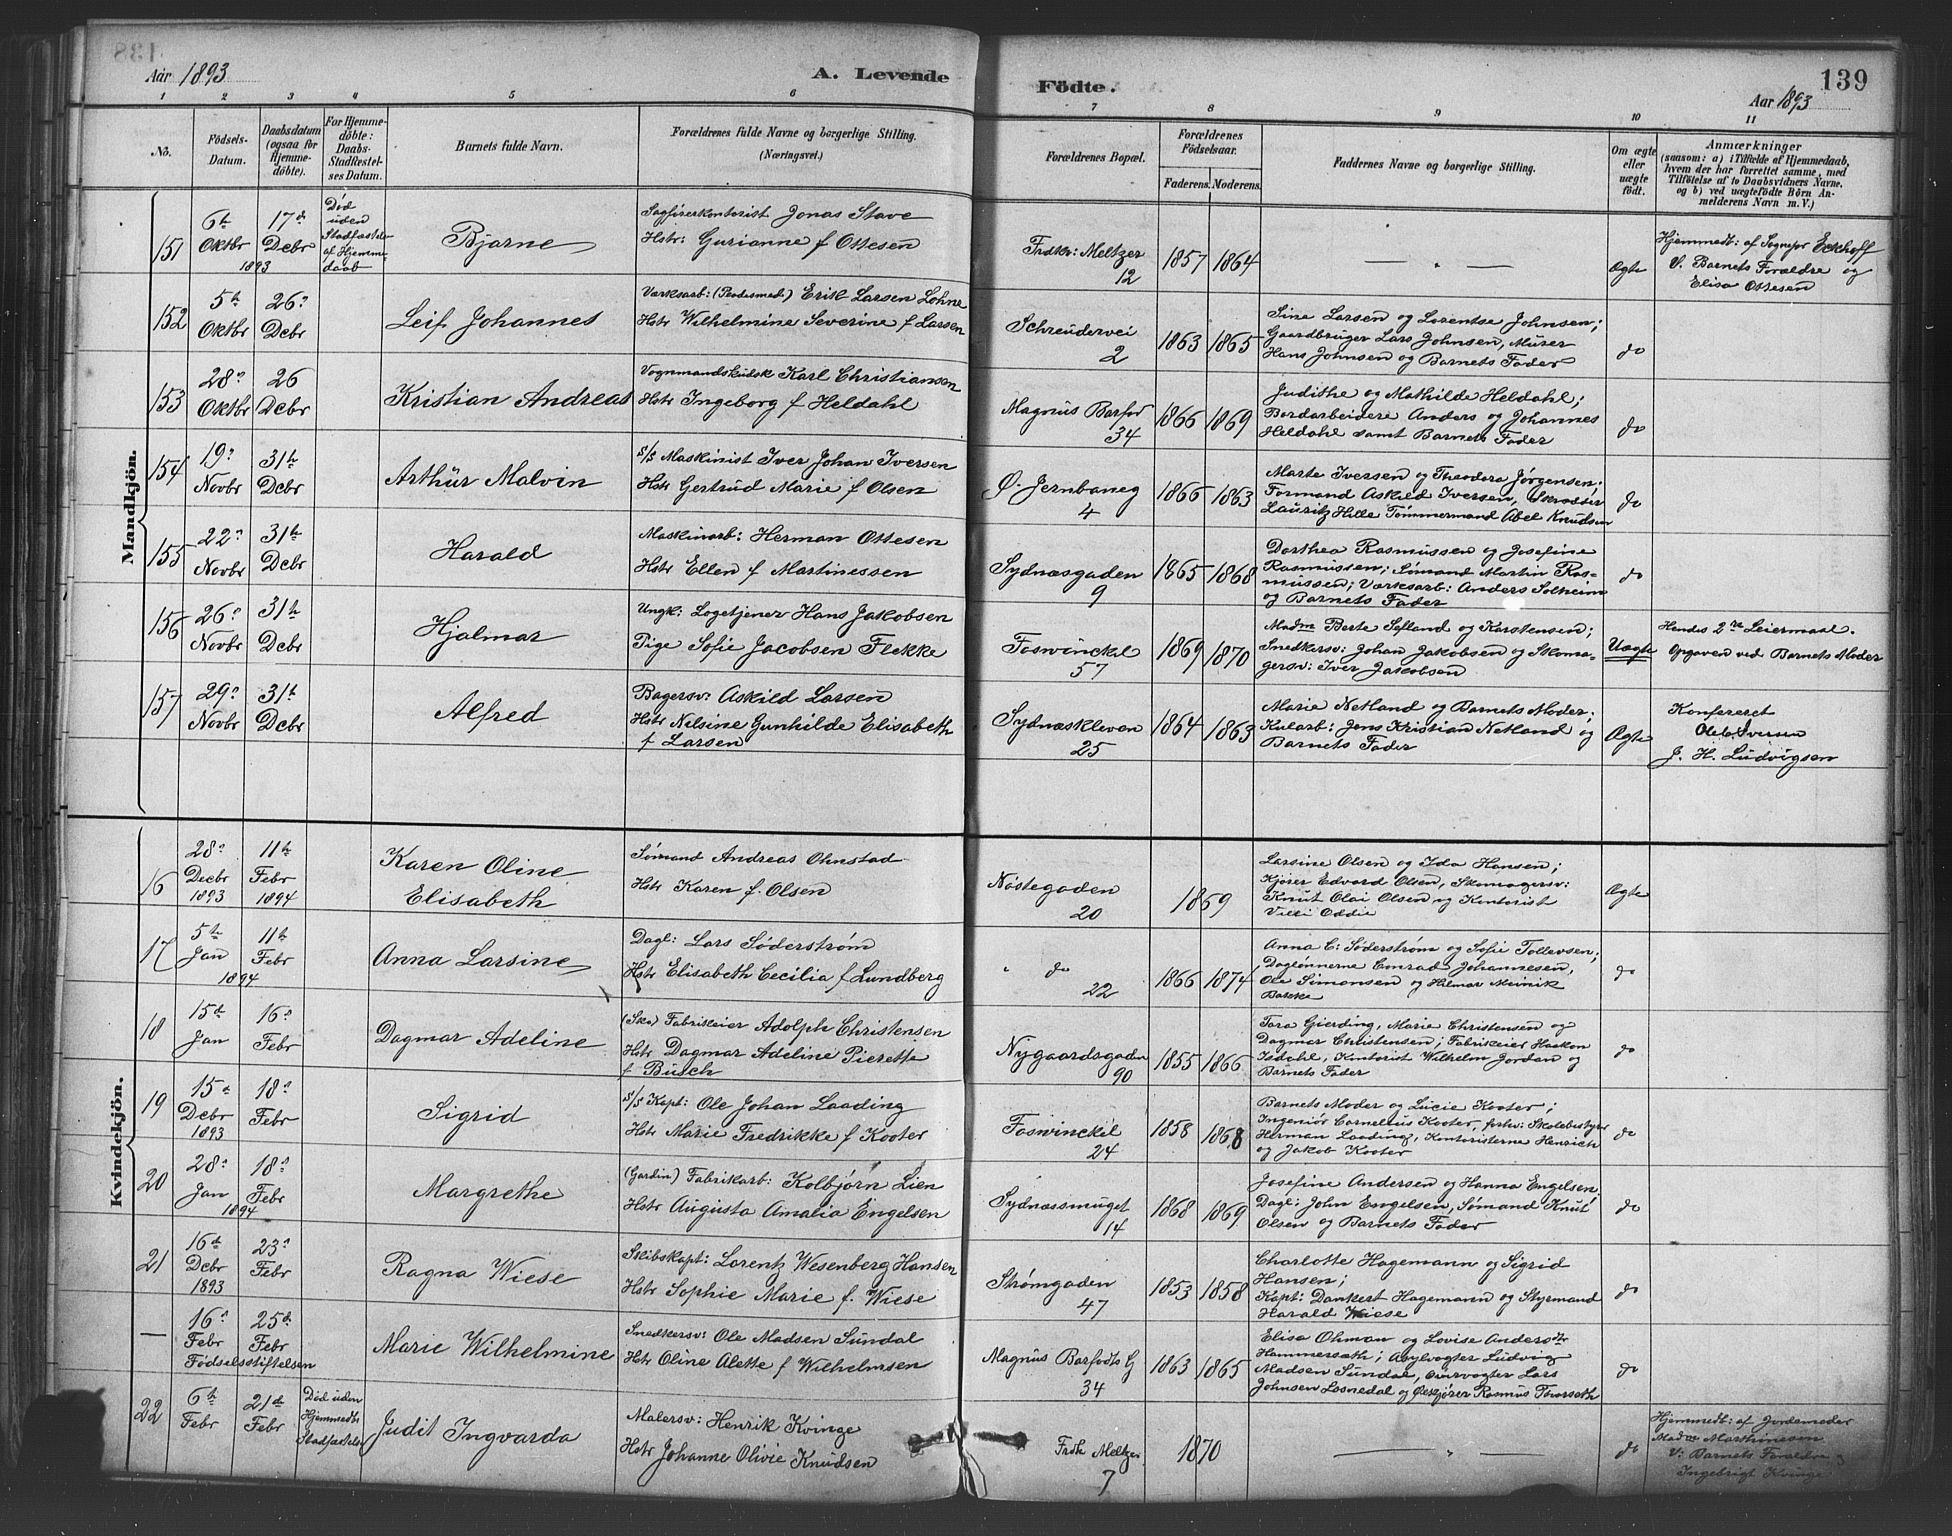 Aar 1893
A. Levende
Födte.
Aar 1893
139
1 2 3 4 5 6 7 8 9 10 11
No.
Födsels-
Datum.
Daabsdatum
(ogsaa for
Hjemme-
döbte).
For Hjemme-
döbte:
Daabs-
Stadfæstel-
ses Datum.
Barnets fulde Navn.
Forældrenes fulde Navne og borgerlige Stilling.
(Næringsvei.)
Forældrenes Bopæl.
Forældrenes
Födselsaar.
Faderens. Moderens.
Faddernes Navne og borgerlige Stilling.
Om ægte
eller
uægte
födt.
Anmærkninger
(saasom: a) i Tilfælde af Hjemmedaab,
hvem der har forrettet samme, med
Tilföielse af to Daabsvidners Navne.
og b) ved uægtefödte Börn An-
melderens Navn m. V.)
Mandkjön.
151
6te
Oktbr
1893
17de
Dcbr
Død
uden
Stadfæstelse
af Hjemme-
daab
Bjarne
Sagførerkontorist Jonas Stave
Hstr: Gurianne f Ottesen
Frdkr: Meltzer
12
1857 1864
— „ —
Ægte
Hjemmedt: af Sognepr Eckhoff
V. Barnets Forældre og
Elisa Ottesen
152
5te
Oktbr
26de
Dcbr
Leif Johannes
Værksarb: Erik Larsen Lohne
Hstr Wilhelmine Severine f Larsen
Schreudervei
2
1863 1865
Sine Larsen og Lorentse Johnsen;
Gaardbruger Lars Johnsen, Murer
Hans Johnsen og Barnets Fader
do
153
28de
Oktbr
26
Dcbr
Kristian Andreas
Vognmandskudsk Karl Christiansen
Hstr Ingeborg f Heldahl
Magnus Barfor
34
1866 1869
Judithe og Mathilde Heldahl;
Bordarbeidere Anders og Johannes
Heldahl samt Barnets Fader
do
154
19de
Novbr
31te
Dcbr
Arthur Malvin
s/s Maskinist Iver Johan Iversen
Hstr Gertrud Marie f Olsen
Ø. Jernbaneg
4
1866 1863
Marte Iversen og Theodora Jørgensen;
Formand Askild Iversen, Skrædder
Lauritz Hille Tømmermand Abel Knudsen
do
155
22de
Novbr
31te
Dcbr
Harald
Maskinarb: Herman Ottesen
Hstr Ellen f Martinessen
Sydnæsgaden
9
1865 1868
Dorthea Rasmussen og Josefine
Rasmussen; Sømand Martin Ras-
mussen; Værksarb: Anders Solheim
og Barnets Fader
do
156
26de
Novbr
31te
Dcbr
Hjalmar
Ungk: Logetjener Hans Jakobsen
Pige Sofie Jacobsen Flekke
Foswinckl
57
1869 1870
Madm Berte Sefland og Karstensen;
Snedkersv: Johan Jakobsen og Skoma-
gersv: Iver Jakobsen
Uægte
Hendes 2det Leiermaal.
Opgaven ved Barnets Moder
157
29de
Novbr
31te
Dcbr
Alfred
Bagersv: Askild Larsen
Hstr Nilsine Gunhilde Elisabeth
f Larsen
Sydnæskleven
25
1864 1863
Marie Netland og Barnets Moder;
Kularb: Jens Kristian Netland og
Barnets Fader
Ægte
Konfereret
Ole Iversen
J. H. Ludvigsen
Kvindekjön.
16
28de
Decbr
1893
11te
Febr
1894
Karen Oline
Elisabeth
Sømand Andreas Ohnstad
Hstr Karen f. Olsen
Nøstegaden
20
1869
Larsine Olsen og Ida Hansen;
Kjører Edvard Olsen, Skomagersv:
Knut Olai Olsen og Kontorist
Villi Oddie
Ægte
17
5te
Jan
1894
11te
Febr
Anna Larsine
Dagl: Lars Søderstrøm
Hstr Elisabeth Cecilia f Lundberg
„ do
22
1866 1874
Anna C: Søderstrøm og Sofie Tollevsen;
Daglønnerne Conrad Johannesen,
Ole Simonsen og Hilmar Meinik
do
18
15de
Jan
16de
Febr
Dagmar Adeline
(Sko) Fabrikeier Adolph Christensen
Hstr Dagmar Adeline Pierette
f Busch
Nygaardsgaden
90
1855 1866
Tora Gierding, Marie Christensen og
Dagmar Christensen; Fabrikeier Haakon
Isdahl, Kontorist Wilhelm Jordan og
Barnets Fader
do
19
15de
Dcbr
1893
18de
Febr
Sigrid
s/s Kapt: Ole Johan Laading
Hstr Marie Fredrikke f Kooter
Foswinckil
24
1858 1868
Barnets Moder og Lucie Kooter;
Ingeniør Cornelius Kooter, forhv: Skolebestyrer
Herman Laading, Kontoristerne Henrich
og Jakob Kooter
do
20
28de
Jan
1894
18de
Febr
Margrethe
(Gardin) Fabrikarb: Kolbjørn Lien
Hstr Augusta Amalia Engelsen
Sydnæssmuget
14
1868 1869
Josefine Andersen og Hanna Engelsen;
Dagl: John Engelsen, Sømand Knut
Olsen og Barnets Fader
do
21
16de
Dcbr
1893
23de
Febr
Ragna Wiese
Skibskapt: Lorentz Wesenberg Hansen
Hstr Sophie Marie f. Wiese
Strømgaden
47
1853 1858
Charlotte Hagemann og Sigrid
Hansen;
Kapt: Dankert Hagemann og Styrmand
Harald Wiese
do
—
16de
Febr
Fødselsstiftelsen
25de
Febr
Marie Wilhelmine
Snedkersv: Ole Madsen Sundal
Hstr Oline Alette f Wilhelmsen
Magnus Barfodts G
34
1863 1865
Elisa Ohman og Lovise Anders
Hammersæth; Asylvogter Ludvig
Madsen Sundal, Lars
Johnsen Losnedal og Rasmus
do
22
6te
Febr
21de
Febr
Død uden
Hjemmedts
Stadfæstelse
Judit Ingvarda
Malersv: Henrik Kvinge
Hstr Johanne Olivie Knudsen
Frdk Meltzer
7
1870
— „ —
do
Hjemmedt: af Jordemoder
Madm Marthinesen
V: Barnets Forældre og
Ingebrigt Kvinge